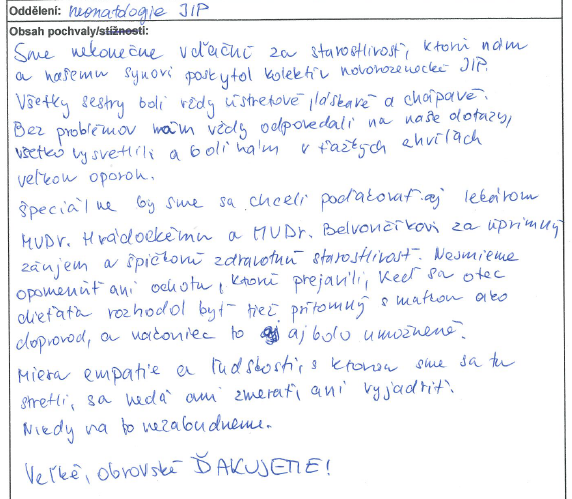 Oddělení: neonatologie JIP
Obsah pochvaly/stížnosti:
Sme nekonečne vďační za starostlivosť, ktorú nám
a našemu synovi poskytol kolektiv novorozenecké JIP.
Všetky sestry boli vždy ústretové, láskavé a chápavé.
Bez problémov nám vždy odpovedali na naše dotazy,
všetko vysvetlili a boli nám v ťažkých chvíľach
veľkou oporou.
Špeciálne by sme sa chceli poďakovať aj lekárom
MUDr. Hrádockému a MUDr. Belvončíkovi za úprimný
záujem a špičkovú zdravotnú starostlivosť. Nesmieme
opomenúť ani ochotu, ktorú prejavili, keď sa otec
dieťaťa rozhodol byť tiež prítomný s matkou ako
doprovod, a nakoniec to aj bolo umožnené.
Miera empatie a ľudskosti, s ktorou sme sa tu
stretli, sa nedá ani zmerať, ani vyjadriť.
Nikdy na to nezabudneme.
Veľké, obrovské ĎAKUJEME!